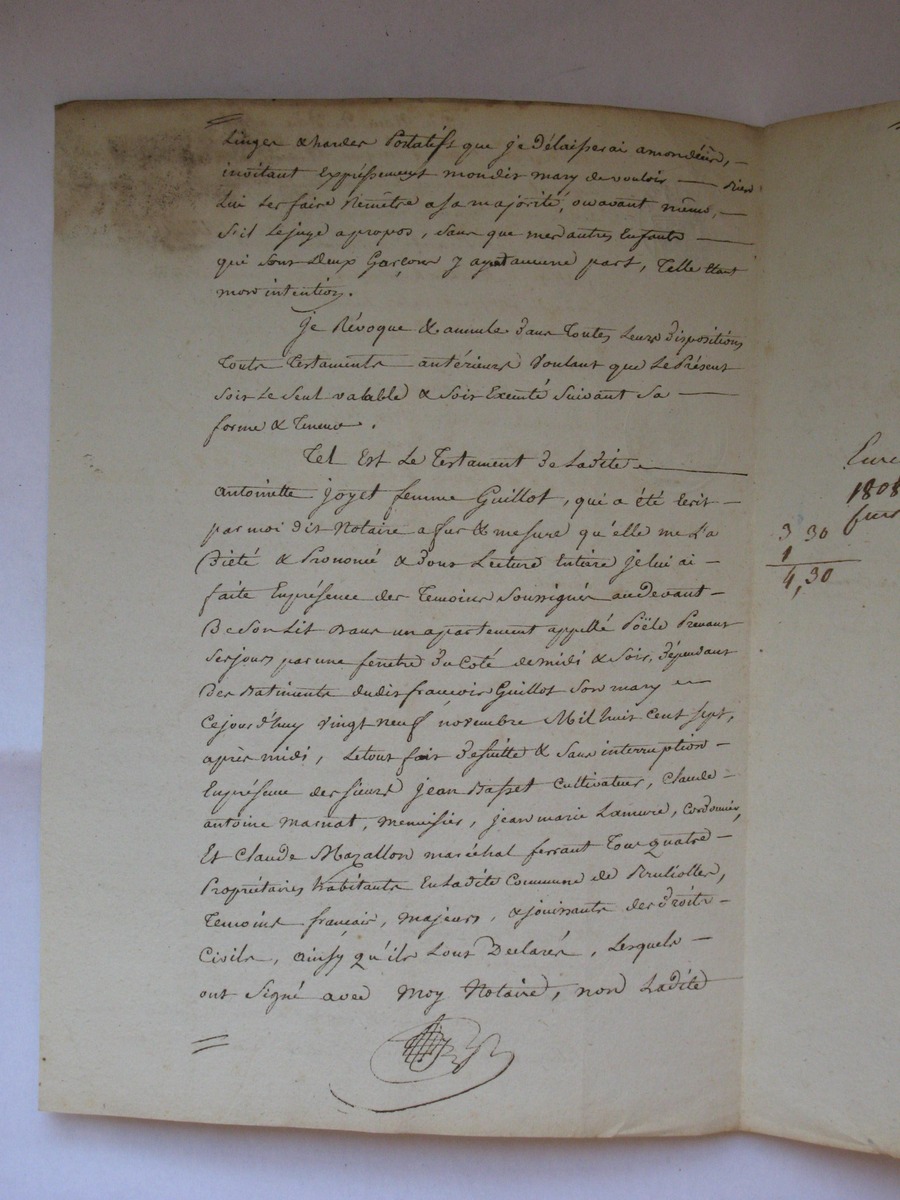 Linges & hardes Portatifs que je Délaisserai a mon décès, —
invitant Expressement mondit mary de vouloir — bien
Lui Les faire Remêtre a sa majorité, ou avant même, —
S'il Le juge a propos, Sans que mes autres Enfants —
qui Sont Deux Garçons y ayent aucune part, Telle Etant
mon intention.
Je Révoque & annule Dans Toutes Leurs Dispositions
Touts Testaments antérieurs Voulant que Le Présent
Soit Le Seul valable & Soit Exécuté Suivant Sa —
forme & Teneur.
Tel Est Le Testament De Ladite —
antoinette joyet femme Guillot, qui a été Ecrit —
par moi dit Notaire a fur & mesure qu'elle me L'a
Dicté & Prononcé & Dont Lecture Entiere je lui ai —
faite En présence des Temoins Soussignés au devant —
De Son Lit Dans un apartement appellé Poële Prenant
Ses jours par une fenetre Du Coté de midi & Soir, Dépendant
Des Batiments dudit françois Guillot Son mary —
Cejourd'huy vingt neuf novembre Mil huit cent sept,
après midi, Le tout fait De suitte & Sans interruption —
En présence des Sieurs jean Basset Cultivateur, Claude —
antoine masnat, Menuisier, jean marie Lamure, Cordonnier,
Et Claude Mazallon maréchal ferrant Tous quatre —
Propriétaires habitants En Ladite Commune de Brullioles,
Temoins français, majeurs, & jouissants des Droits —
Civils, ainsy qu'ils L'ont Déclaré, Lesquels —
ont Signé avec Moy Notaire, non Ladite
1808
3 30
1
4,30